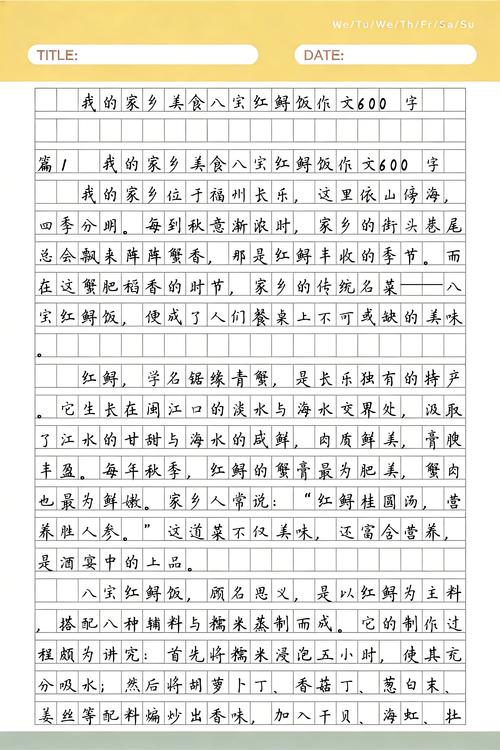 We/Tu/We/Th/Fr/Sa/Su
TITLE: DATE:
我的家乡美食八宝红鲟饭作文600 字
篇1 我的家乡美食八宝红鲟饭作文600 字
我的家乡位于福州长乐，这里依山傍海，
四季分明。每到秋意渐浓时，家乡的街头巷尾
总会飘来阵阵蟹香，那是红鲟丰收的季节。而
在这蟹肥稻香的时节，家乡的传统名菜——八
宝红鲟饭，便成了人们餐桌上不可或缺的美味
。
红鲟，学名锯缘青蟹，是长乐独有的特产
。它生长在闽江口的淡水与海水交界处，汲取
了江水的甘甜与海水的咸鲜，肉质鲜美，膏腴
丰盈。每年秋季，红鲟的蟹膏最为肥美，蟹肉
也最为鲜嫩。家乡人常说：“红鲟桂圆汤，营
养胜人参。”这道菜不仅美味，还富含营养，
是酒宴中的上品。
八宝红鲟饭，顾名思义，是以红鲟为主料
，搭配八种辅料与糯米蒸制而成。它的制作过
程颇为讲究：首先将糯米浸泡五小时，使其充
分吸水；然后将胡萝卜丁、香菇丁、葱白末、
姜丝等配料煸炒出香味，加入干贝、海虹、壮